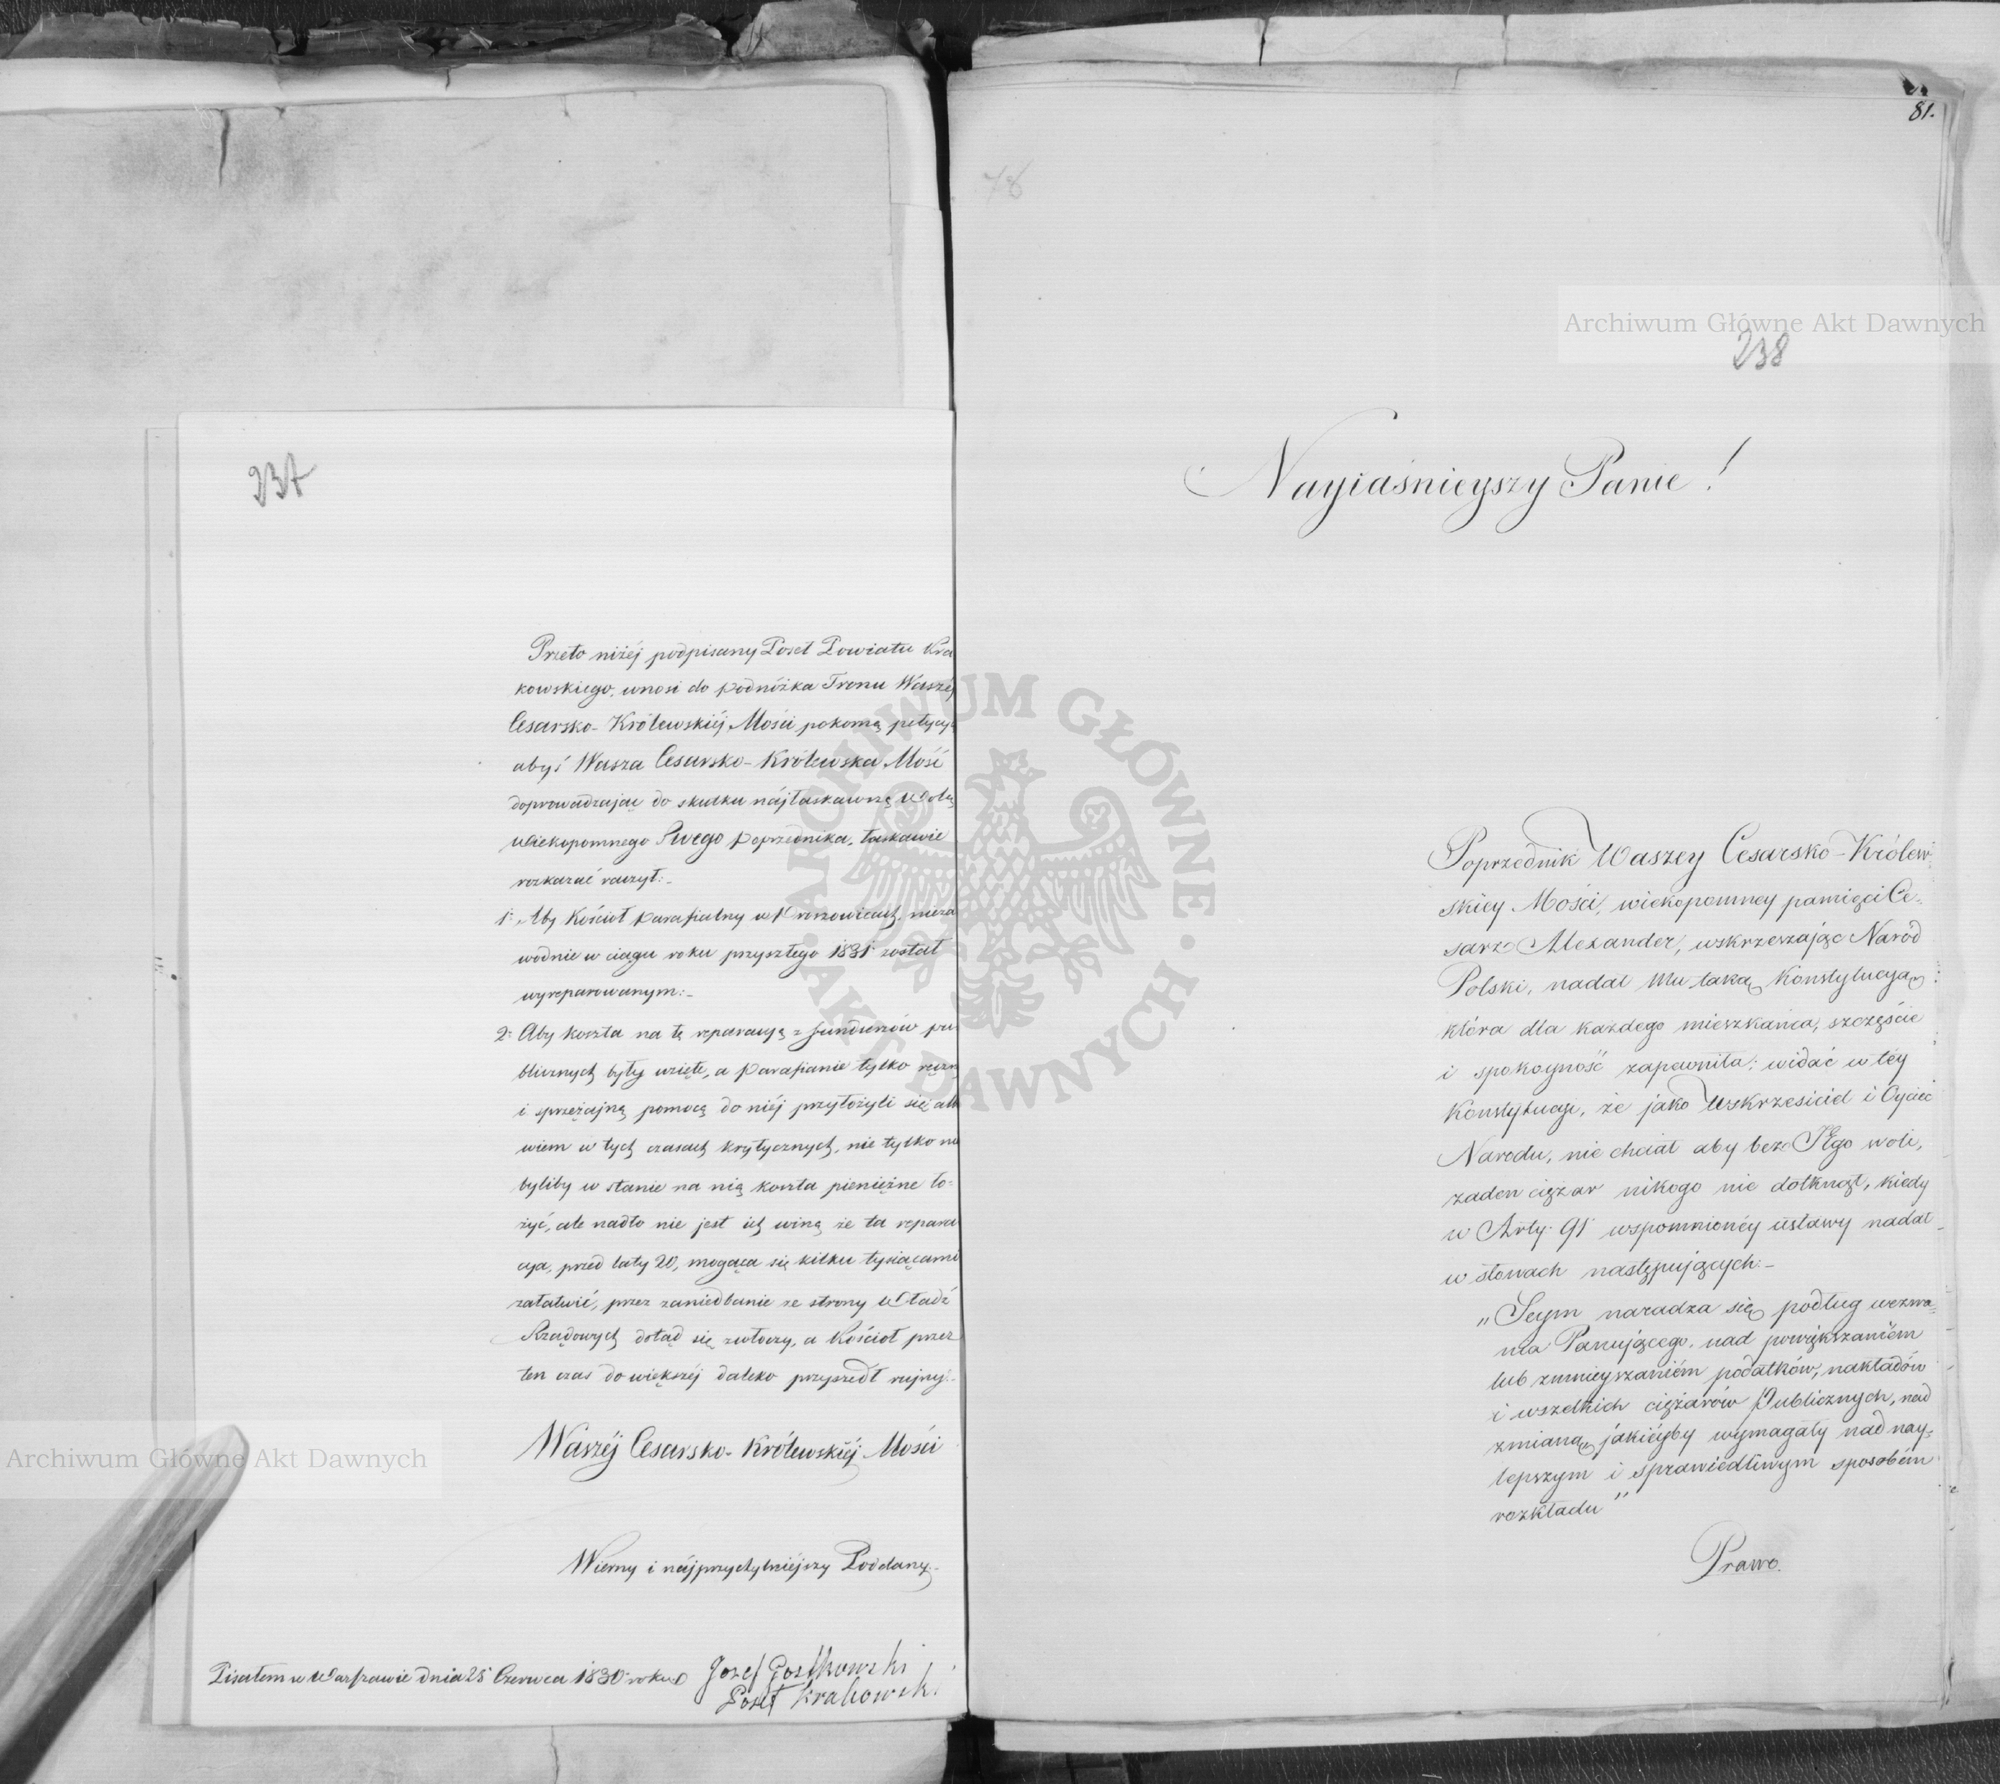 237
Przeto niżéj podpisany Poseł Powiatu Kra
kowskiego, wnosi do podnóżka Tronu Waszéj
Cesarsko-Królewskiéj Mości pokorną petycyą
abyś Wasza Cesarsko-Królewska Mość
doprowadzając do skutku nájłaskawszą Wolą
Wiekopomnego Swego poprzednika, łaskawie
rozkazać raczył:_
1. Aby Kościoł parafialny w Prosz­owicach nieza
wodnie w ciągu roku przyszłego 1831 został
wyreparowanym:_
2. Aby koszta na tę reparacyą z funduszów pu
blicznych były wzięte, a parafianie tylko ręczną
i sprzężajną pomocą do niéj przyłożyli się; alb
wiem w tych czasach krytycznych, nie tylko nie
byliby w stanie na nią koszta pieniężne ło=
żyć, ale nadto nie jest ich winą że ta repara
cya, przed laty 20, mogąca się kilku tysiącami
załatwić, przez zaniedbanie ze strony Władz
Rządowych dotąd się zwłoczy, a Kościoł przez
ten czas do większéj daleko przyszedł rujny:_
Waszéj Cesarsko-Królewskiéj Mości
Wierny i nájprzychylniéjszy Poddany:_
Pisałem w Warszawie dnia 25 Czerwca 1830 roku
Jozef Gostkowski
Poseł Krakowski
81.
78
238
Nayiaśnieyszy Panie!
Poprzednik Waszey Cesarsko-Królew
skiey Mości, wiekopomney pamięci Ce=
sarz Alexander, wskrzeszając Naród
Polski, nadał Mu taką Konstytucyą
która dla każdego mieszkańca, szczęście
i spokoyność zapewniła; widać w téy
Konstytucyi, że jako Wskrzesiciel i Oyciec
Narodu, nie chciał aby bez JEgo woli,
żaden ciężar nikogo nie dotknął, kiedy
w Arty: 91 wspomnionéy ustawy nadał
w słowach następujących:_
„Seym naradza się podług wezwa=
nia Panującego, nad powiększaniém
lub zmnieyszaniém podatków, nakładów
i wszelkich ciężarów Publicznych, nad
zmianą jakiéyby wymagały nad nay=
lepszym i sprawiedliwym sposobém
rozkładu"
Prawo.
Archiwum Główne Akt Dawnych
Archiwum Główne Akt Dawnych
ARCHIWUM GŁÓWNE · AKT DAWNYCH ·